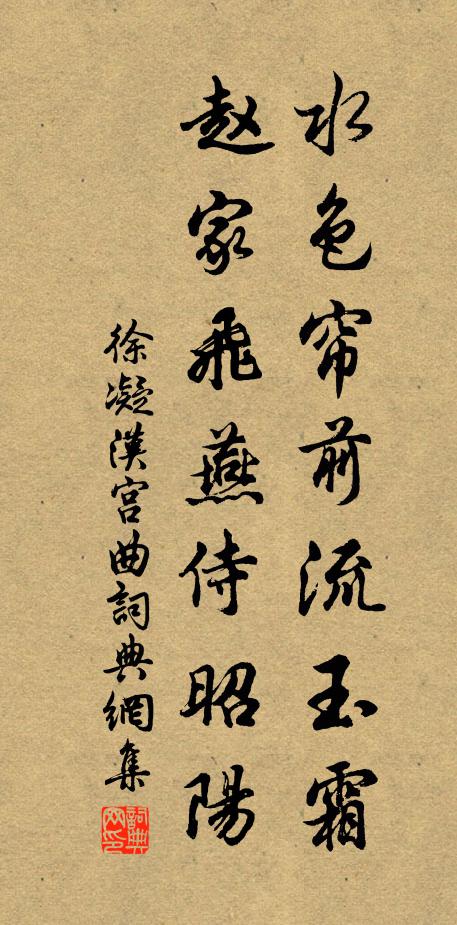 水色帘前流玉霜
赵家飛燕侍昭陽
徐凝漢宫曲詞典網集
詞典網印